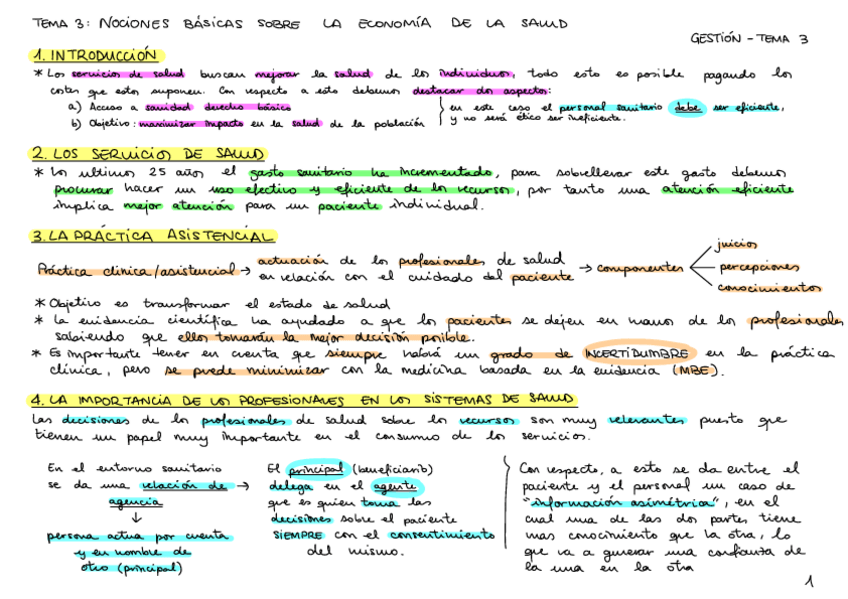 TEMA 3: NOCIONES BÁSICAS SOBRE LA ECONOMÍA DE LA SALUD
GESTIÓN - TEMA 3
1. INTRODUCCIÓN
* Los servicios de salud buscan mejorar la salud de los individuos, todo esto es posible pagando los
costes que estos suponen. Con respecto a esto debemos destacar dos aspectos:
a) Acceso a sanidad derecho básico
b) Objetivo: maximizar impacto en la salud de la población
en este caso el personal sanitario debe ser eficiente,
y no será ético ser ineficiente.
2. LOS SERVICIOS DE SALUD
* Los ultimos 25 años el gasto sanitario ha incrementado, para sobrellevar este gasto debemos
procurar hacer un uso efectivo y eficiente de los recursos, por tanto una atención eficiente
implica mejor atención para un paciente individual.
3. LA PRÁCTICA ASISTENCIAL
Práctica clínica/asistencial → actuación de los profesionales de salud
en relación con el cuidado del paciente → componentes
juicios
percepciones
conocimientos
* Objetivo es transformar el estado de salud
* La evidencia científica ha ayudado a que los pacientes se dejen en manos de los profesionales
sabiendo que ellos tomarán la mejor decisión posible.
* Es importante tener en cuenta que siempre habrá un grado de INCERTIDUMBRE en la práctica
clínica, pero se puede minimizar con la medicina basada en la evidencia (MBE).
4. LA IMPORTANCIA DE LOS PROFESIONALES EN LOS SISTEMAS DE SALUD
Las decisiones de los profesionales de salud sobre los recursos son muy relevantes puesto que
tienen un papel muy importante en el consumo de los servicios.
En el entorno sanitario
se da una relación de →
agencia
↓
persona actua por cuenta
y en nombre de
otro (principal)
El principal (beneficiario)
delega en el agente
que es quien toma las
decisiones sobre el paciente
SIEMPRE con el consentimiento
del mismo.
Con respecto, a esto se da entre el
paciente y el personal un caso de
"información asimétrica", en el
cual una de las dos partes tiene
mas conocimiento que la otra, lo
que va a generar una confianza de
la una en la otra
1